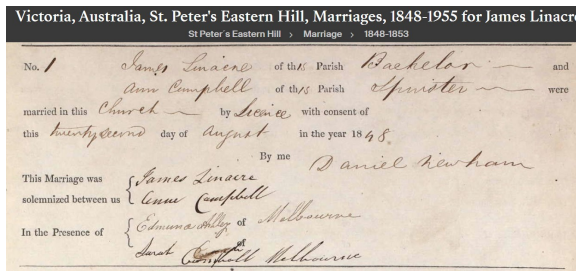 Victoria, Australia, St. Peter's Eastern Hill, Marriages, 1848-1955 for James Linacre
St Peter's Eastern Hill > Marriage > 1848-1853
No. 1 James Linacre of this Parish Bachelor and
Ann Campbell of this Parish Spinster were
married in this Church by Licence with consent of
this twenty second day of August in the year 1848.
By me Daniel Newham
This Marriage was
solemnized between us
James Linacre
Campbell
In the Presence of
Edmund of Melbourne
Sarah Campbell of Melbourne